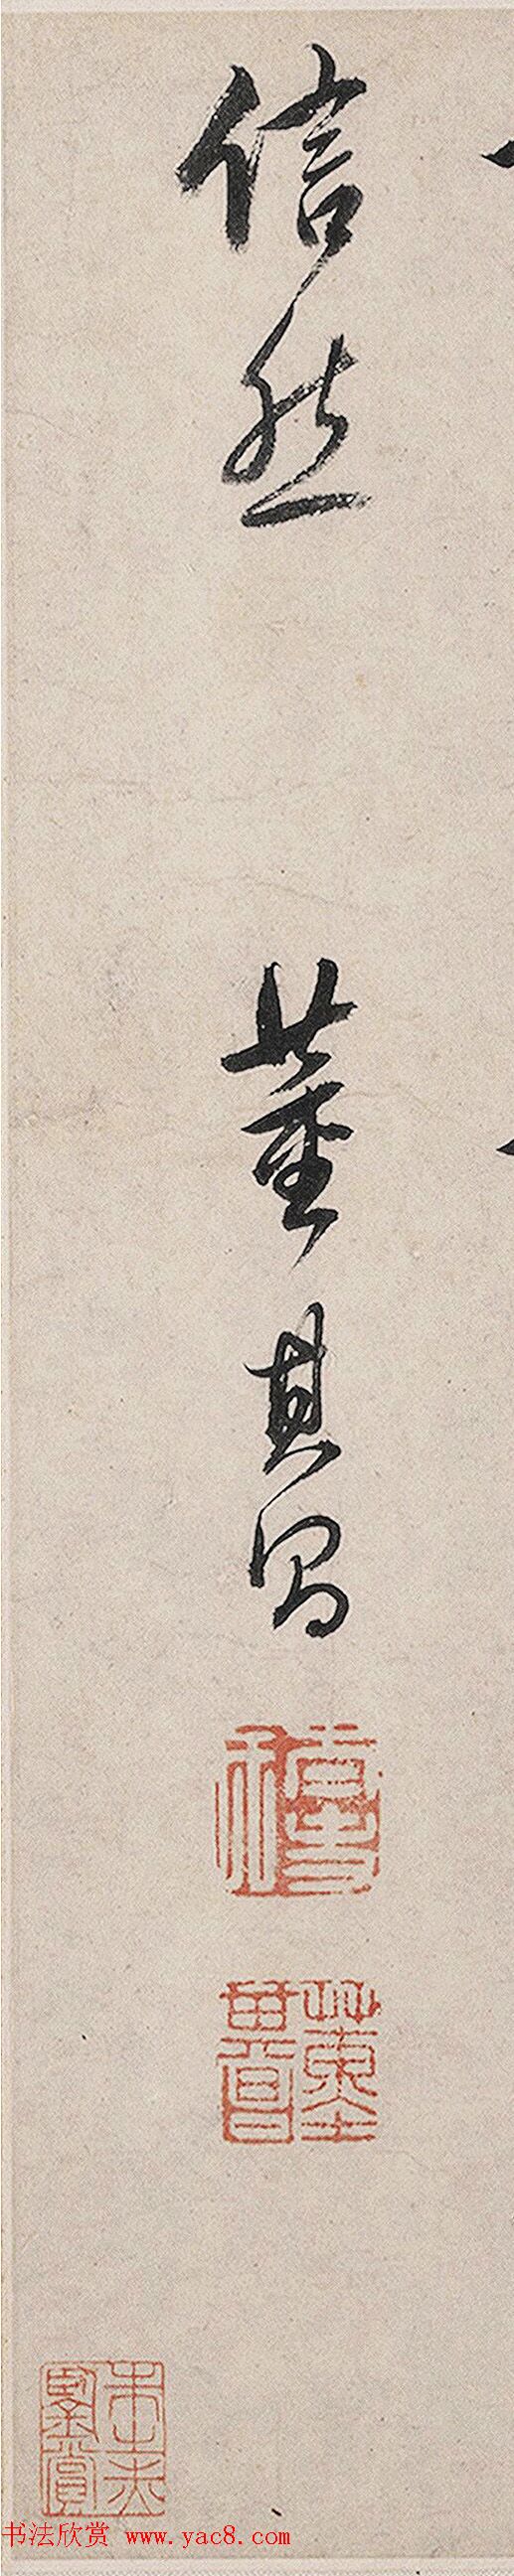 信然
董其昌
董其昌
书法欣赏 www.yac8.com